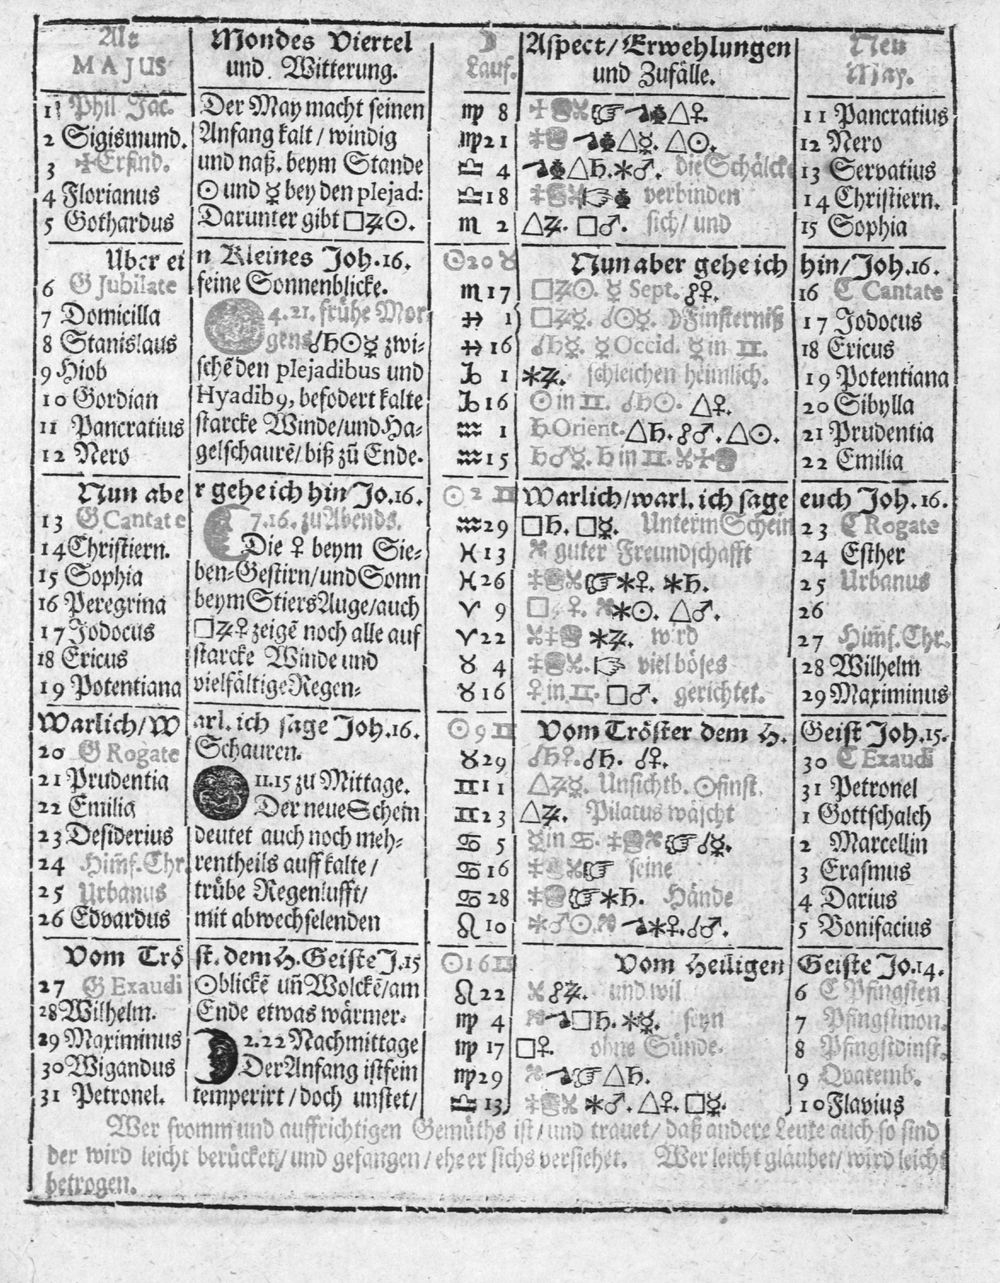 Alt | Mondes Viertel | ☽ | Aspect/ Erwehlungen | Neu
MAJUS | und Witterung. | Lauf. | und Zufälle. | May.
1 Phil. Jac. | Der May macht seinen | ♍ 8 | △♀. | 11 Pancratius
2 Sigismund. | Anfang kalt/ windig | ♍ 21 | △☿. △☉. | 12 Nero
3 ✠Erfind. | und naß. beym Stande | ♎ 4 | △♄.⚹♂. die Schälcke | 13 Servatius
4 Florianus | ☉ und ☿ bey den plejad: | ♎ 18 | verbinden | 14 Christiern.
5 Gothardus | Darunter gibt □♃☉. | ♏ 2 | △♃. □♂. sich/ und | 15 Sophia
Uber ein Kleines Joh.16. | ☉20 ♉ | Nun aber gehe ich hin/ Joh.16.
6 G Jubilate | feine Sonnenblicke. | ♏ 17 | □♃☉. ☿ Sept. ☍♀. | 16 C Cantate
7 Domicilla | 4.21. frühe Mor- | ♐ 1 | □♃☿. ☍☉☿. ☽Finsterniß | 17 Jodocus
8 Stanislaus | gens ☌♄☉☿ zwi- | ♐ 16 | ☌♄☿. ☿ Occid. ☿ in ♊. | 18 Ericus
9 Hiob | schē den plejadibus und | ♑ 1 | ⚹♃. schleichen heimlich. | 19 Potentiana
10 Gordian | Hyadib9, befodert kalte | ♑ 16 | ☉ in ♊. ☌♄☉. △♀. | 20 Sibylla
11 Pancratius | starcke Winde/ und Ha- | ♒ 1 | ♄ Orient. △♄. ☍♂. △☉. | 21 Prudentia
12 Nero | gelschaurē/ biß zū Ende. | ♒ 15 | ♄♂☿. ♄ in ♊. | 22 Emilia
Nun aber gehe ich hin Jo.16. | ☉ 2 ♊ | Warlich/ warl. ich sage euch Joh.16.
13 G Cantate | 7.16. zu Abends. | ♒ 29 | □♄. □☿. Unterm Schein | 23 C Rogate
14 Christiern. | Die ♀ beym Sie- | ♓ 13 | guter Freundschafft | 24 Esther
15 Sophia | ben-Gestirn/ und Sonn | ♓ 26 | ⚹♀. ⚹♄. | 25 Urbanus
16 Peregrina | beym Stiers Auge/ auch | ♈ 9 | ⚹☉. △♂. | 26
17 Jodocus | □♃♀ zeigē noch alle auf | ♈ 22 | ⚹♃. wird | 27 Him̄f. Chr.
18 Ericus | starcke Winde und | ♉ 4 | viel böses | 28 Wilhelm
19 Potentiana | vielfältige Regen- | ♉ 16 | ♀ in ♊. □♂. gerichtet. | 29 Maximinus
Warlich/ Warl. ich sage Joh.16. | ☉ 9 ♊ | Vom Tröster dem H. Geist Joh.15.
20 G Rogate | Schauren. | ♉ 29 | ☌♄♀. ☌♄. ☌♀. | 30 C Exaudi
21 Prudentia | 11.15 zu Mittage. | ♊ 11 | △♃☿. Unsichtb. ☉finst. | 31 Petronel
22 Emilia | Der neue Schein | ♊ 23 | △♃. Pilatus wäscht | 1 Gottschalch
23 Desiderius | deutet auch noch meh- | ♋ 5 | ☿ in ♋. ☌☿. | 2 Marcellin
24 Him̄f. Chr. | rentheils auff kalte/ | ♋ 16 | seine | 3 Erasmus
25 Urbanus | trübe Regenlufft/ | ♋ 28 | ⚹♄. Hände | 4 Darius
26 Edvardus | mit abwechselenden | ♌ 10 | ⚹♂☉. ⚹♀. ☌♂. | 5 Bonifacius
Vom Tröst. dem H. Geiste J.15 | ☉16 ♊ | Vom Heiligen Geiste Jo.14.
27 G Exaudi | ☉blickē uñ Wolckē/ am | ♌ 22 | ☍♃. und wil | 6 C Pfingsten
28 Wilhelm. | Ende etwas wärmer. | ♍ 4 | □♄. ⚹☿. seyn | 7 Pfingstmon.
29 Maximinus | 2.22 Nachmittage | ♍ 17 | □♀. ohne Sünde. | 8 Pfingstdinst.
30 Wigandus | Der Anfang ist fein | ♍ 29 | △♄. | 9 Qvatemb.
31 Petronel. | temperirt/ doch unstet/ | ♎ 13 | ⚹♂. △♀. □☿. | 10 Flavius
Wer fromm und auffrichtigen Gemüths ist/ und trauet/ daß andere Leute auch so sind
der wird leicht berücket/ und gefangen/ ehe er sichs versiehet. Wer leicht gläubet/ wird leicht
betrogen.